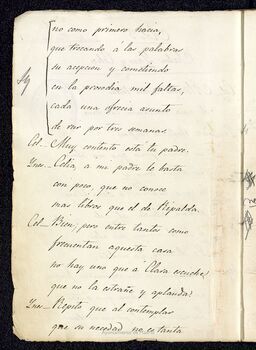 no como primero hacia,
que trocando a las palabras
su acepcion y cometiendo
en la prosodia mil faltas,
cada una ofrecia asunto
de reir por tres semanas.
Cel. Muy contento esta tu padre.
Ynes. Celia, a mi padre le basta
con poco, que no conoce
mas libros que el de Ripalda.
Cel. Bien; pero entre tantos como
frecuentan aquesta casa
no hay uno que á Clara escuche,
que no la estrañe y aplauda?
Ynes. Repito que al contemplar
que su necedad no es tanta